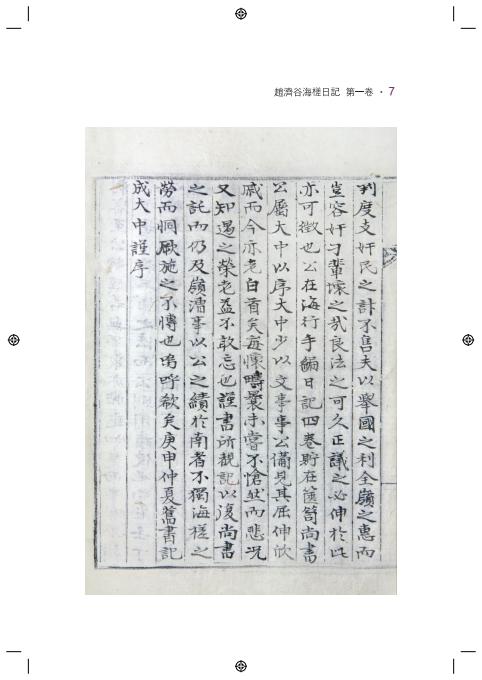 趙濟谷海槎日記 第一卷 · 7
判度支奸民之計不售夫以舉國之利全嶺之惠而
豈容奸刁輩壞之哉良法之可久正議之必伸於此
亦可徵也公在海行手編日記四卷貯在篋笥尚書
公屬大中以序大中少以文事事公備見其屈伸欣
戚而今亦老白首矣每懷疇曩未嘗不愴然而悲况
又知遇之榮老益不敢忘也謹書所觀記以復尚書
之託而仍及嶺漕事以公之績於南者不獨海槎之
勞而恫厥施之不慱也嗚呼欷矣庚申仲夏舊書記
成大中謹序